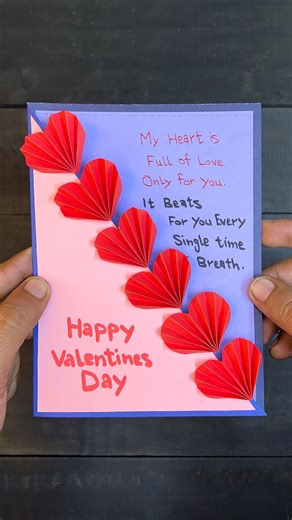 My Heart is
Full of Love
Only for you.
It Beats
For You Every
Single time
Breath.
Happy
Valentines
Day